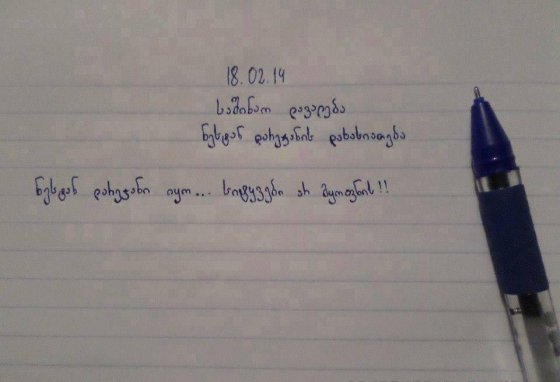 18.02.14
საშინაო დავალება
ნესტან დარეჯანის დახასიათება
ნესტან დარეჯანი იყო... სიტყვები არ მყოფნის!!